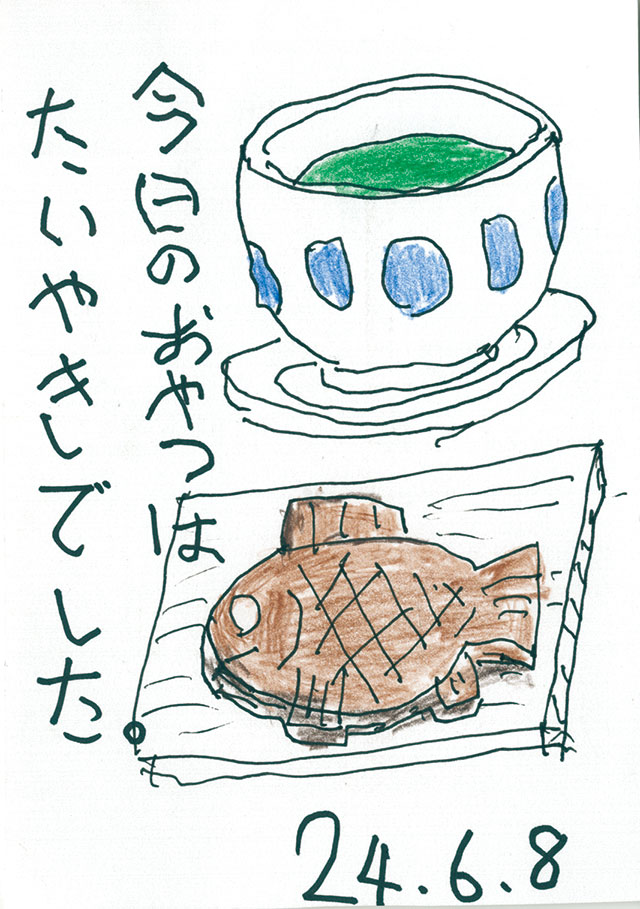 今日のおやつは
たいやきでした
24.6.8